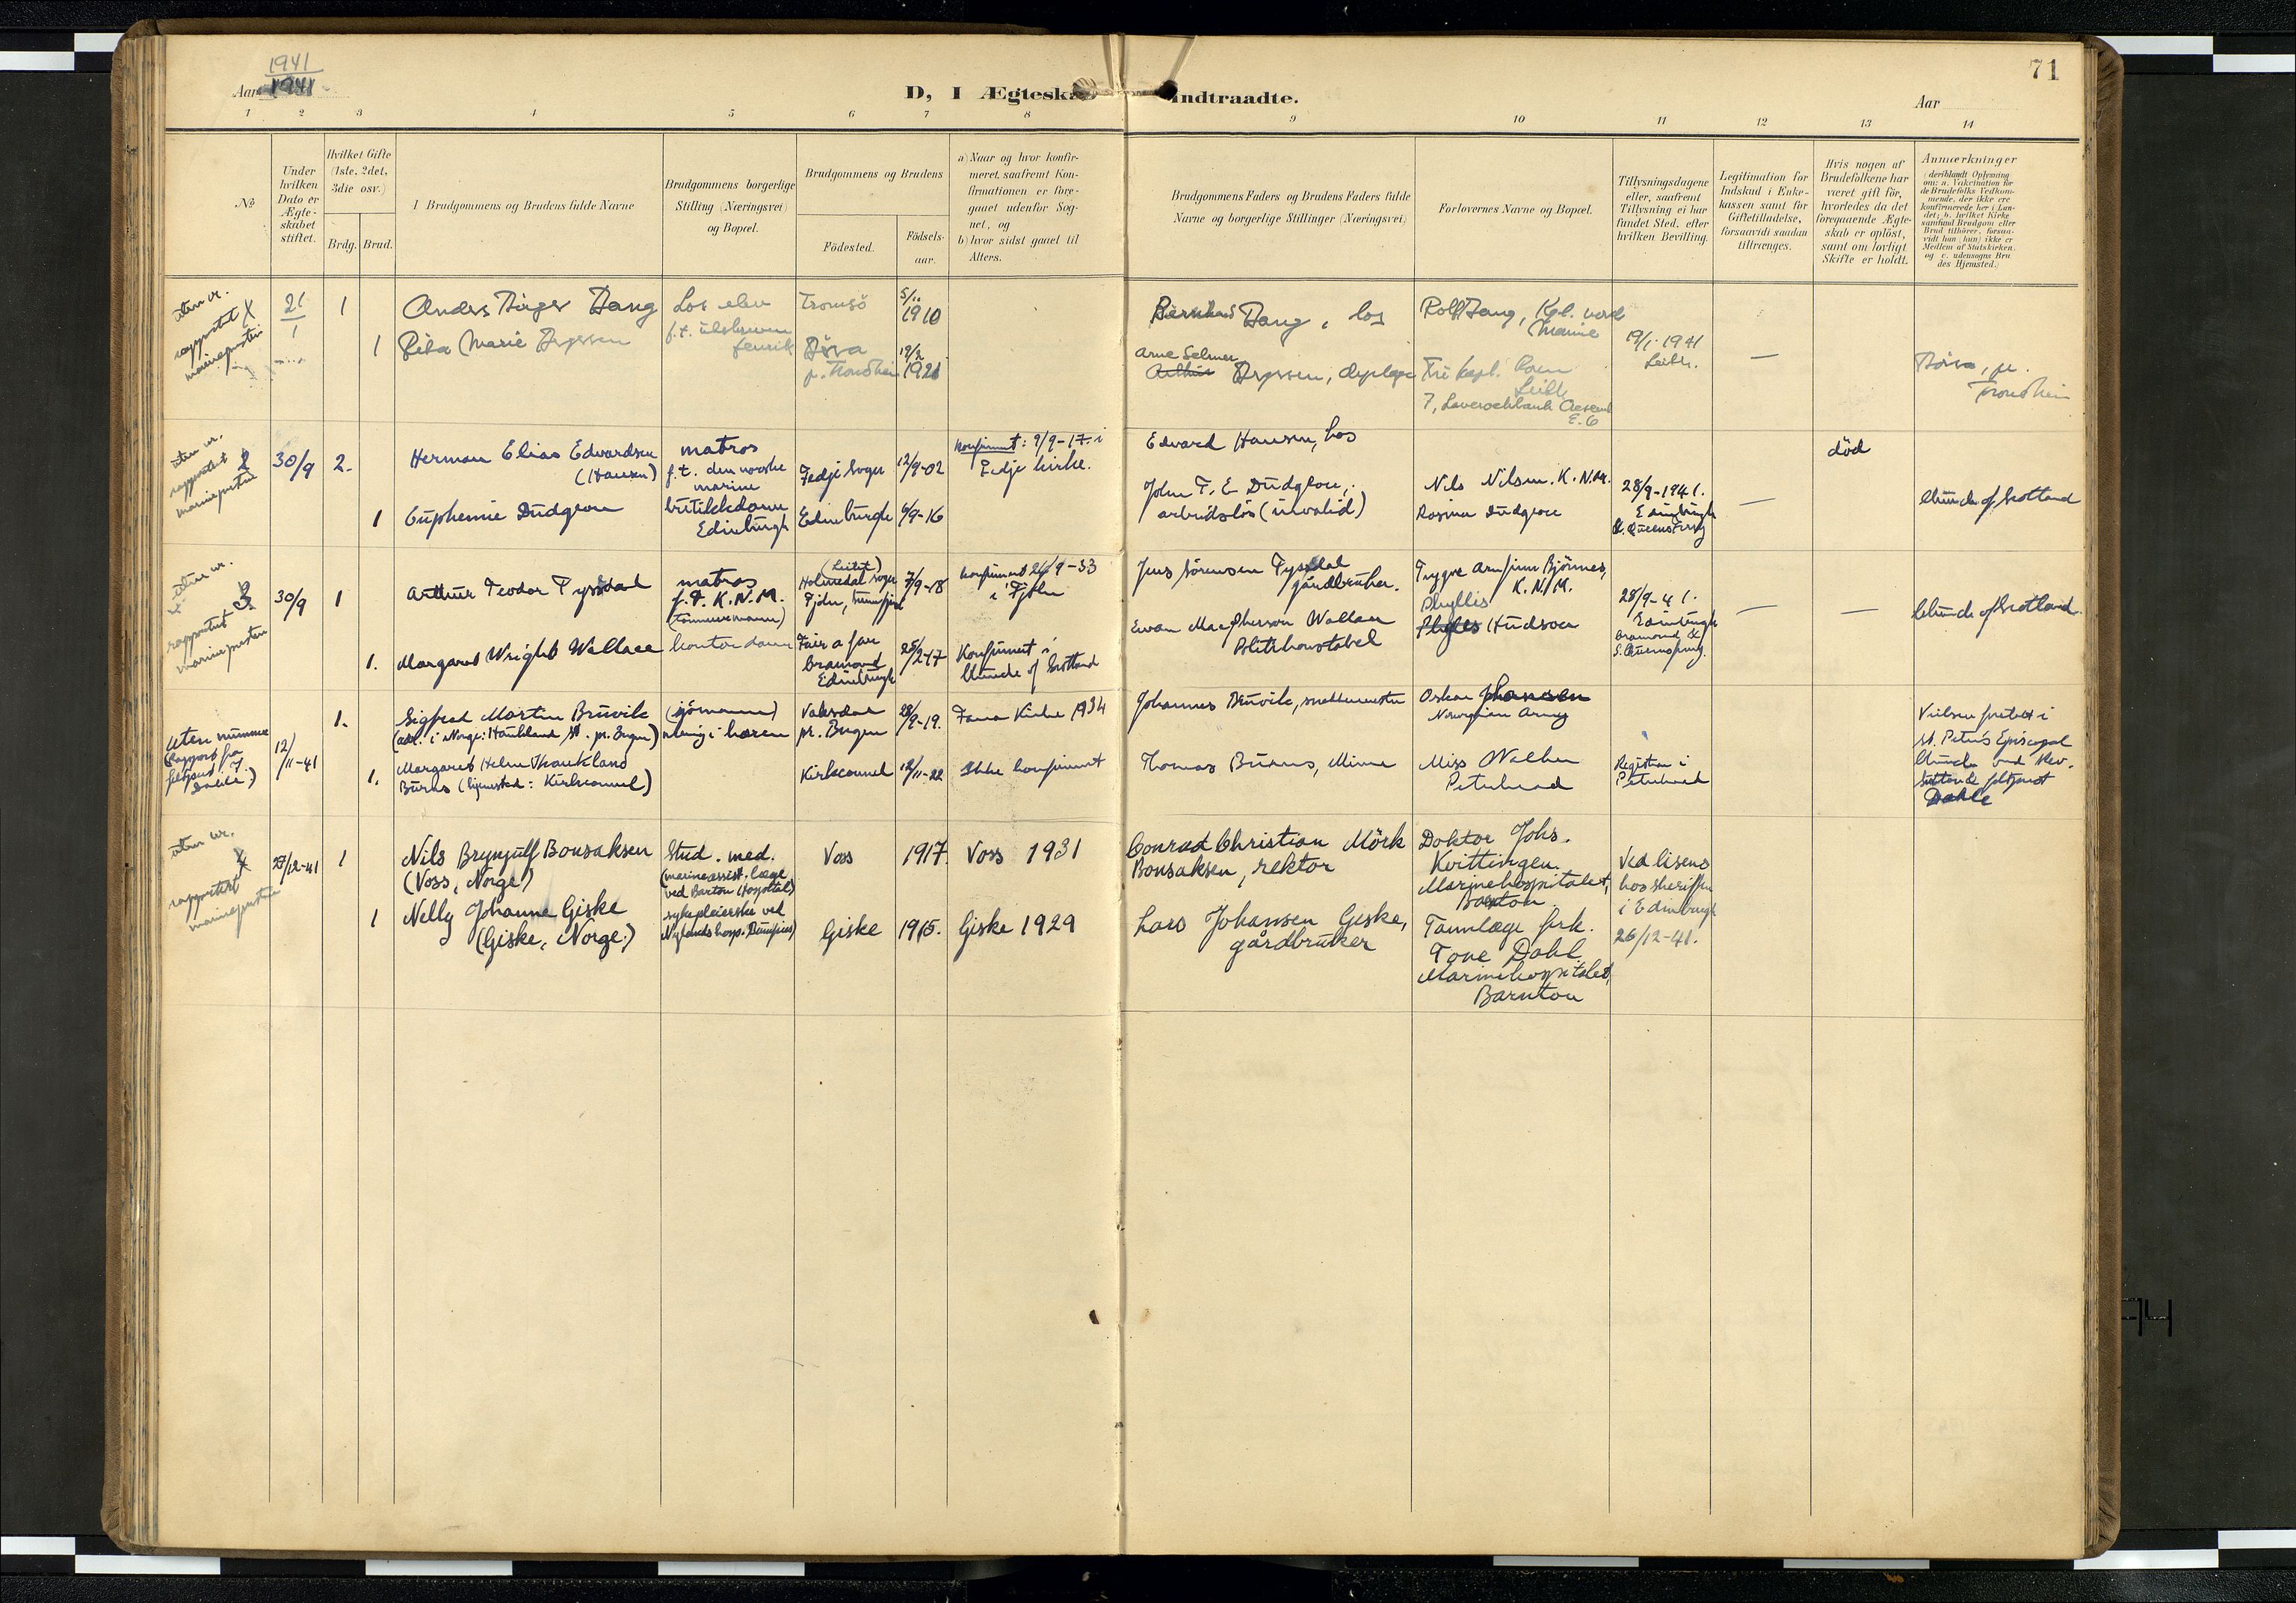 1941
71
Aar 1941
D, I Ægteska
Indtraadte.
Aar
1 2 3 4 5 6 7 8 9 10 11 12 13 14
No
Under hvilken Dato er Ægteskabet stiftet.
Hvilket Gifte (1ste, 2det, 3die osv.)
Brdg. Brud.
Brudgommens og Brudens fulde Navne
Brudgommens borgerlige Stilling (Næringsvei) og Bopæl.
Brudgommens og Brudens
Födested.
Födsels-aar.
a) Naar og hvor konfir-
meret, saafremt Kon-
firmationen er fore-
gaaet udenfor Sog-
net, og
b) hvor sidst gaaet til
Alters.
Brudgommens Faders og Brudens Faders fulde
Navne og borgerlige Stillinger (Næringsvei)
Forlovernes Navne og Bopæl.
Tillysningsdagene
eller, saafremt
Tillysning ei har
fundet Sted, efter
hvilken Bevilling.
Legitimation for
Indskud i Enke-
kassen samt for
Giftetilladelse,
forsaavidt saadan
tiltrænges.
Hvis nogen af
Brudefolkene har
været gift för,
hvorledes da det
foregaaende Ægte-
skab er oplöst,
samt om lovligt
Skifte er holdt.
Anmærkninger
(deriblandt Oplysning
om: a. Vakcination for
de Brudefolks Vedkom-
mende, der ikke ere
konfirmerede her i Lan-
det; b. hvilket Kirke
samfund Brudgom eller
Brud tilhörer, forsaa-
vidt han (hun) ikke er
Medlem af Statskirken,
og c. udensogns Bru
des Hjemsted.)
uten nr.
rapportert
marinepresten
21
1
1
Anders Birger Bang
Los elev
Tromsö
5/11
1910
Bang, los
Rolf Bang, Kgl. norsk
Marine
19/1-1941
Leith.
1
Marie
Börsa
p. Trondheim
19/2
1921
Arne Selmer
—
Leith
E. 6
Börsa, pr.
Trondheim
uten nr.
rapportert 2
marineprestene
30/9
2.
Herman Elias Edvardsen
(Hansen)
matros
f.t. den norske
marine
Fedje Sogn
12/9-02
Konfirmert: 9/9-17. i
Fedje kirke.
Edvard Hansen, los
Nils Nilsen. K.N.M.
28/9-1941.
Edinburgh
S. Queensferry
—
död
Church of Scotland
1
Euphemie Dudgeon
butikkdame
Edinburgh
Edinburgh
6/9-16
John T. E Dudgeon,
arbeidslös (invalid)
Rosina Dudgeon
uten nr.
3
rapportert
marinepresten
30/9
1
Arthur Teodor Tyssdal
matros
f.t. K.N.M.
(tömmermann)
Holmedal sogn
7/9-18
Konfirmert 24/9-33
i Fjöln
Jens Sörensen Tyssdal
gårdbruker.
Trygve Arnfinn Björnes,
K.N.M.
28/9-41.
Edinburgh
—
—
Church of Scotland.
1.
Margaret Wright Wallace
kontordame
Fair a far
Cramond
Edinburgh
25/2-17
Konfirmert i
Church of Scotland
Ewan MacPherson Wallace
Politikonstabel
Phyllis
Hudson
Cramond &
S. Queensferry.
Uten nummer
(Rapport fra
feltprest
Dahle)
12/11-41
1.
Sigfred Martin Bruvik
(adr. i Norge: Haukland st. pr. Bergen)
(sjömann)
menig i hæren
Vaksdal
pr. Bergen
28/9-19.
Fana Kirke 1934
Johannes Bruvik,
Oskar Johansen
Norwegian Army
Vielsen foretatt i
St. Peter's Episcopal
Church ved Rev.
feltprest
Dahle
1.
Margaret Helen Haukland
Burns (hjemsted: Kirkconnel)
Kirkconnel
12/11-22
Ikke konfirmert
Thomas Burns, Miner
Miss Walker
Peterhead
Registrar i
Peterhead
uten nr.
4
rapportert
marinepresten
27/12-41
1
Nils Brynjulf Bonsaksen
(Voss, Norge)
Stud. med.
(marineassist. læge
ved Barton Hospital)
Voss
1917.
Voss 1931
Conrad Christian Mörk
Bonsaksen, rektor
Doktor Johs.
Kvittingen.
Marinehospitalet,
Barnton.
Ved lisens
hos sheriffen
i Edinburgh
26/12-41.
1
Nelly Johanne Giske
(Giske, Norge.)
sykepleierske ved
Nylands hosp. Dumfries)
Giske
1915.
Giske 1929
Lars Johansen Giske,
gårdbruker
Tannlæge frk.
Tove Dahl
Marinehospitalet,
Barnton